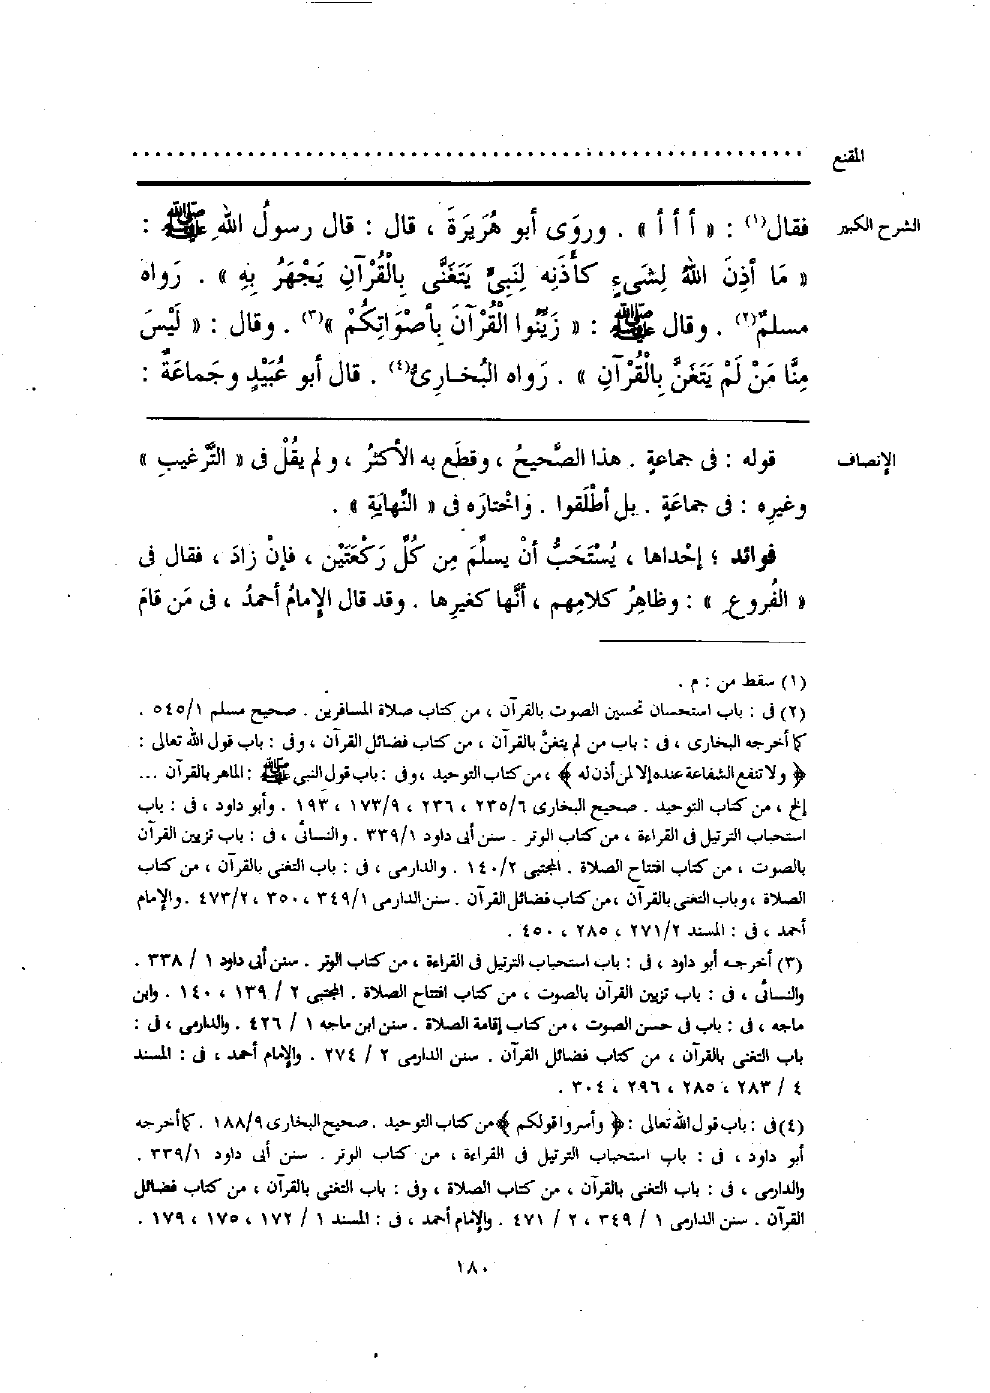 المقنع ................................................................
الشرح الكبير فقال(١) : « أ أ أ » . وروَى أبو هُرَيرَةَ ، قال : قال رسولُ اللهِ ﷺ :
« مَا أذِنَ اللهُ لِشَىءٍ كأَذَنِه لِنَبِىٍّ يَتَغَنَّى بِالْقُرْآنِ يَجْهَرُ بِهِ » . رَواه
مسلمٌ(٢) . وقال ﷺ : « زَيِّنُوا الْقُرْآنَ بِأصْوَاتِكُمْ »(٣) . وقال : « لَيْسَ
مِنَّا مَنْ لَمْ يَتَغَنَّ بِالْقُرْآنِ » . رَواه البُخارِىُّ(٤) . قال أبو عُبَيْدٍ وجَماعَةٌ :
الإنصاف قوله : فى جماعةٍ . هذا الصَّحيحُ ، وقطَع به الأكثرُ ، ولم يقُلْ فى « التَّرغيبِ »
وغيرِه : فى جماعَةٍ . بل أطْلَقوا . واخْتارَه فى « النِّهايَةِ » .
فوائد ؛ إحْداها ، يُسْتَحَبُّ أنْ يسلِّمَ مِن كُلِّ رَكْعَتَيْن ، فإنْ زادَ ، فقال فى
« الفُروعِ » : وظاهِرُ كلامِهم ، أنَّها كغيرِها . وقد قال الإمامُ أحمدُ ، فى مَن قامَ
(١) سقط من : م .
(٢) فى : باب استحسان تحسين الصوت بالقرآن ، من كتاب صلاة المسافرين . صحيح مسلم ٥٤٥/١ .
كما أخرجه البخارى ، فى : باب من لم يتغنَّ بالقرآن ، من كتاب فضائل القرآن ، وفى : باب قول الله تعالى :
﴿ ولا تنفع الشفاعة عنده إلا لمن أذن له ﴾ ، من كتاب التوحيد ، وفى : باب قول النبى ﷺ : الماهر بالقرآن ...
إلخ ، من كتاب التوحيد . صحيح البخارى ٢٣٥/٦ ، ٢٣٦ ، ١٧٣/٩ ، ١٩٣ . وأبو داود ، فى : باب
استحباب الترتيل فى القراءة ، من كتاب الوتر . سنن أبى داود ٣٣٩/١ . والنسائى ، فى : باب تزيين القرآن
بالصوت ، من كتاب افتتاح الصلاة . المجتبى ١٤٠/٢ . والدارمى ، فى : باب التغنى بالقرآن ، من كتاب
الصلاة ، وباب التغنى بالقرآن ، من كتاب فضائل القرآن . سنن الدارمى ٣٤٩/١ ، ٣٥٠ ، ٤٧٣/٢ . والإمام
أحمد ، فى : المسند ٢٧١/٢ ، ٢٨٥ ، ٤٥٠ .
(٣) أخرجه أبو داود ، فى : باب استحباب الترتيل فى القراءة ، من كتاب الوتر . سنن أبى داود ١ / ٣٣٨ .
والنسائى ، فى : باب تزيين القرآن بالصوت ، من كتاب افتتاح الصلاة . المجتبى ٢ / ١٣٩ ، ١٤٠ . وابن
ماجه ، فى : باب فى حسن الصوت ، من كتاب إقامة الصلاة . سنن ابن ماجه ١ / ٤٢٦ . والدارمى ، فى :
باب التغنى بالقرآن ، من كتاب فضائل القرآن . سنن الدارمى ٢ / ٢٧٤ . والإمام أحمد ، فى : المسند
٤ / ٢٨٣ ، ٢٨٥ ، ٢٩٦ ، ٣٠٤ .
(٤) فى : باب قول الله تعالى : ﴿ وأسروا قولكم ﴾ من كتاب التوحيد . صحيح البخارى ١٨٨/٩ . كما أخرجه
أبو داود ، فى : باب استحباب الترتيل فى القراءة ، من كتاب الوتر . سنن أبى داود ٣٣٩/١ .
والدارمى ، فى : باب التغنى بالقرآن ، من كتاب الصلاة ، وفى : باب التغنى بالقرآن ، من كتاب فضائل
القرآن . سنن الدارمى ١ / ٣٤٩ ، ٢ / ٤٧١ . والإمام أحمد ، فى : المسند ١ / ١٧٢ ، ١٧٥ ، ١٧٩ .
١٨٠